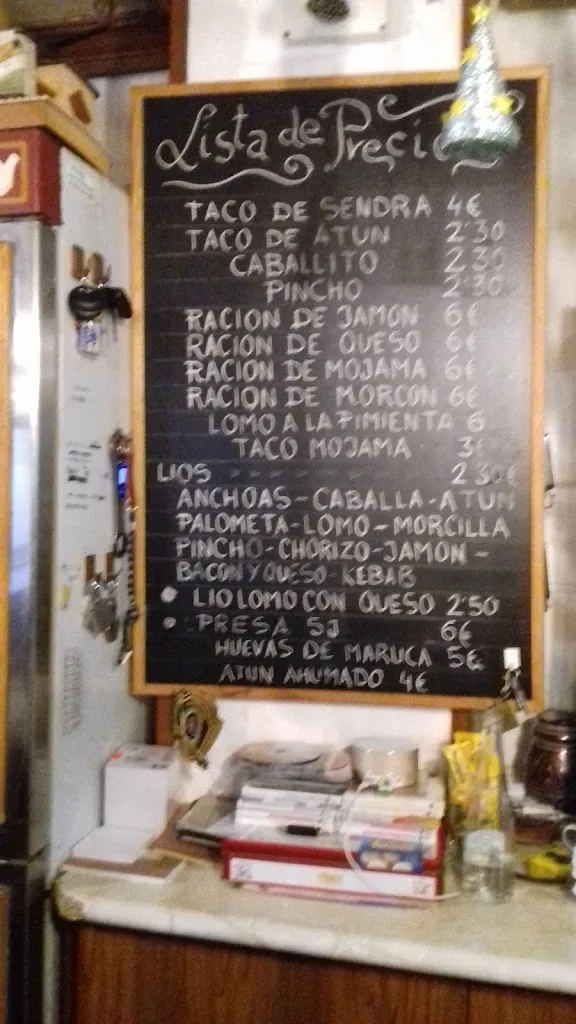 Lista de Precio
TACO DE SENDRA 4€
TACO DE ATUN 2'30
CABALLITO 2'30
PINCHO 2'30
RACION DE JAMON 6€
RACION DE QUESO 6€
RACION DE MOJAMA 6€
RACION DE MORCON 6€
LOMO A LA PIMIENTA 6
TACO MOJAMA 3€
LIOS 2'30€
ANCHOAS-CABALLA-ATUN
PALOMETA-LOMO-MORCILLA
PINCHO-CHORIZO-JAMON-
BACON Y QUESO-KEBAB
LIO LOMO CON QUESO 2'50
PRESA 5J 6€
HUEVAS DE MARUCA 5€
ATUN AHUMADO 4€